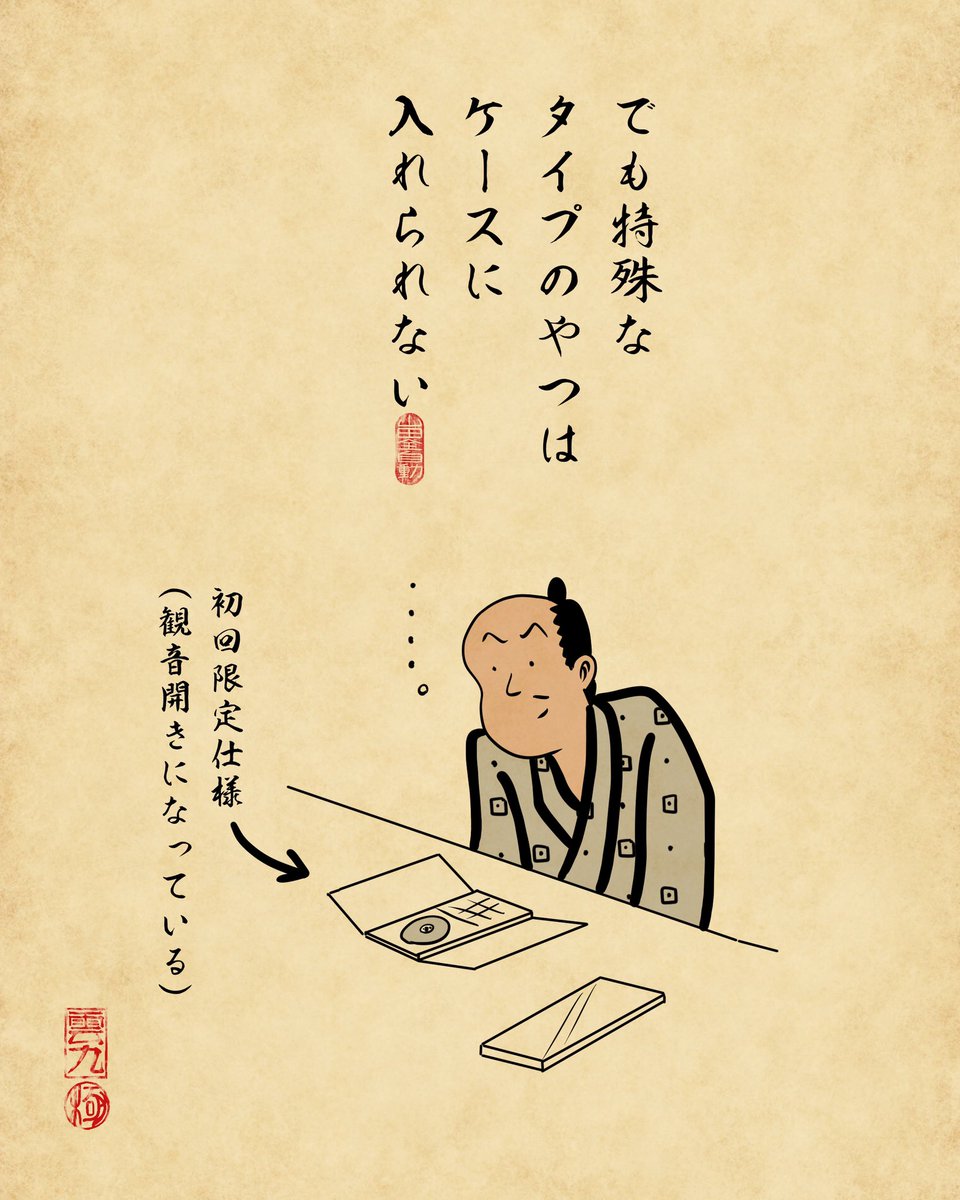 でも特殊な
タイプのやつは
ケースに
入れられない
初回限定仕様
(観音開きになっている)